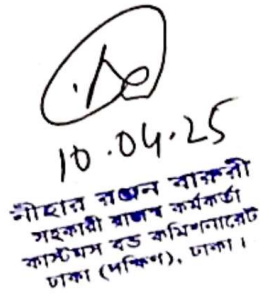 10.04.25
নীহার রঞ্জন বাকতী
সহকারী রাজস্ব কর্মকর্তা
কাস্টমস বন্ড কমিশনারেট
ঢাকা (দক্ষিণ), ঢাকা।